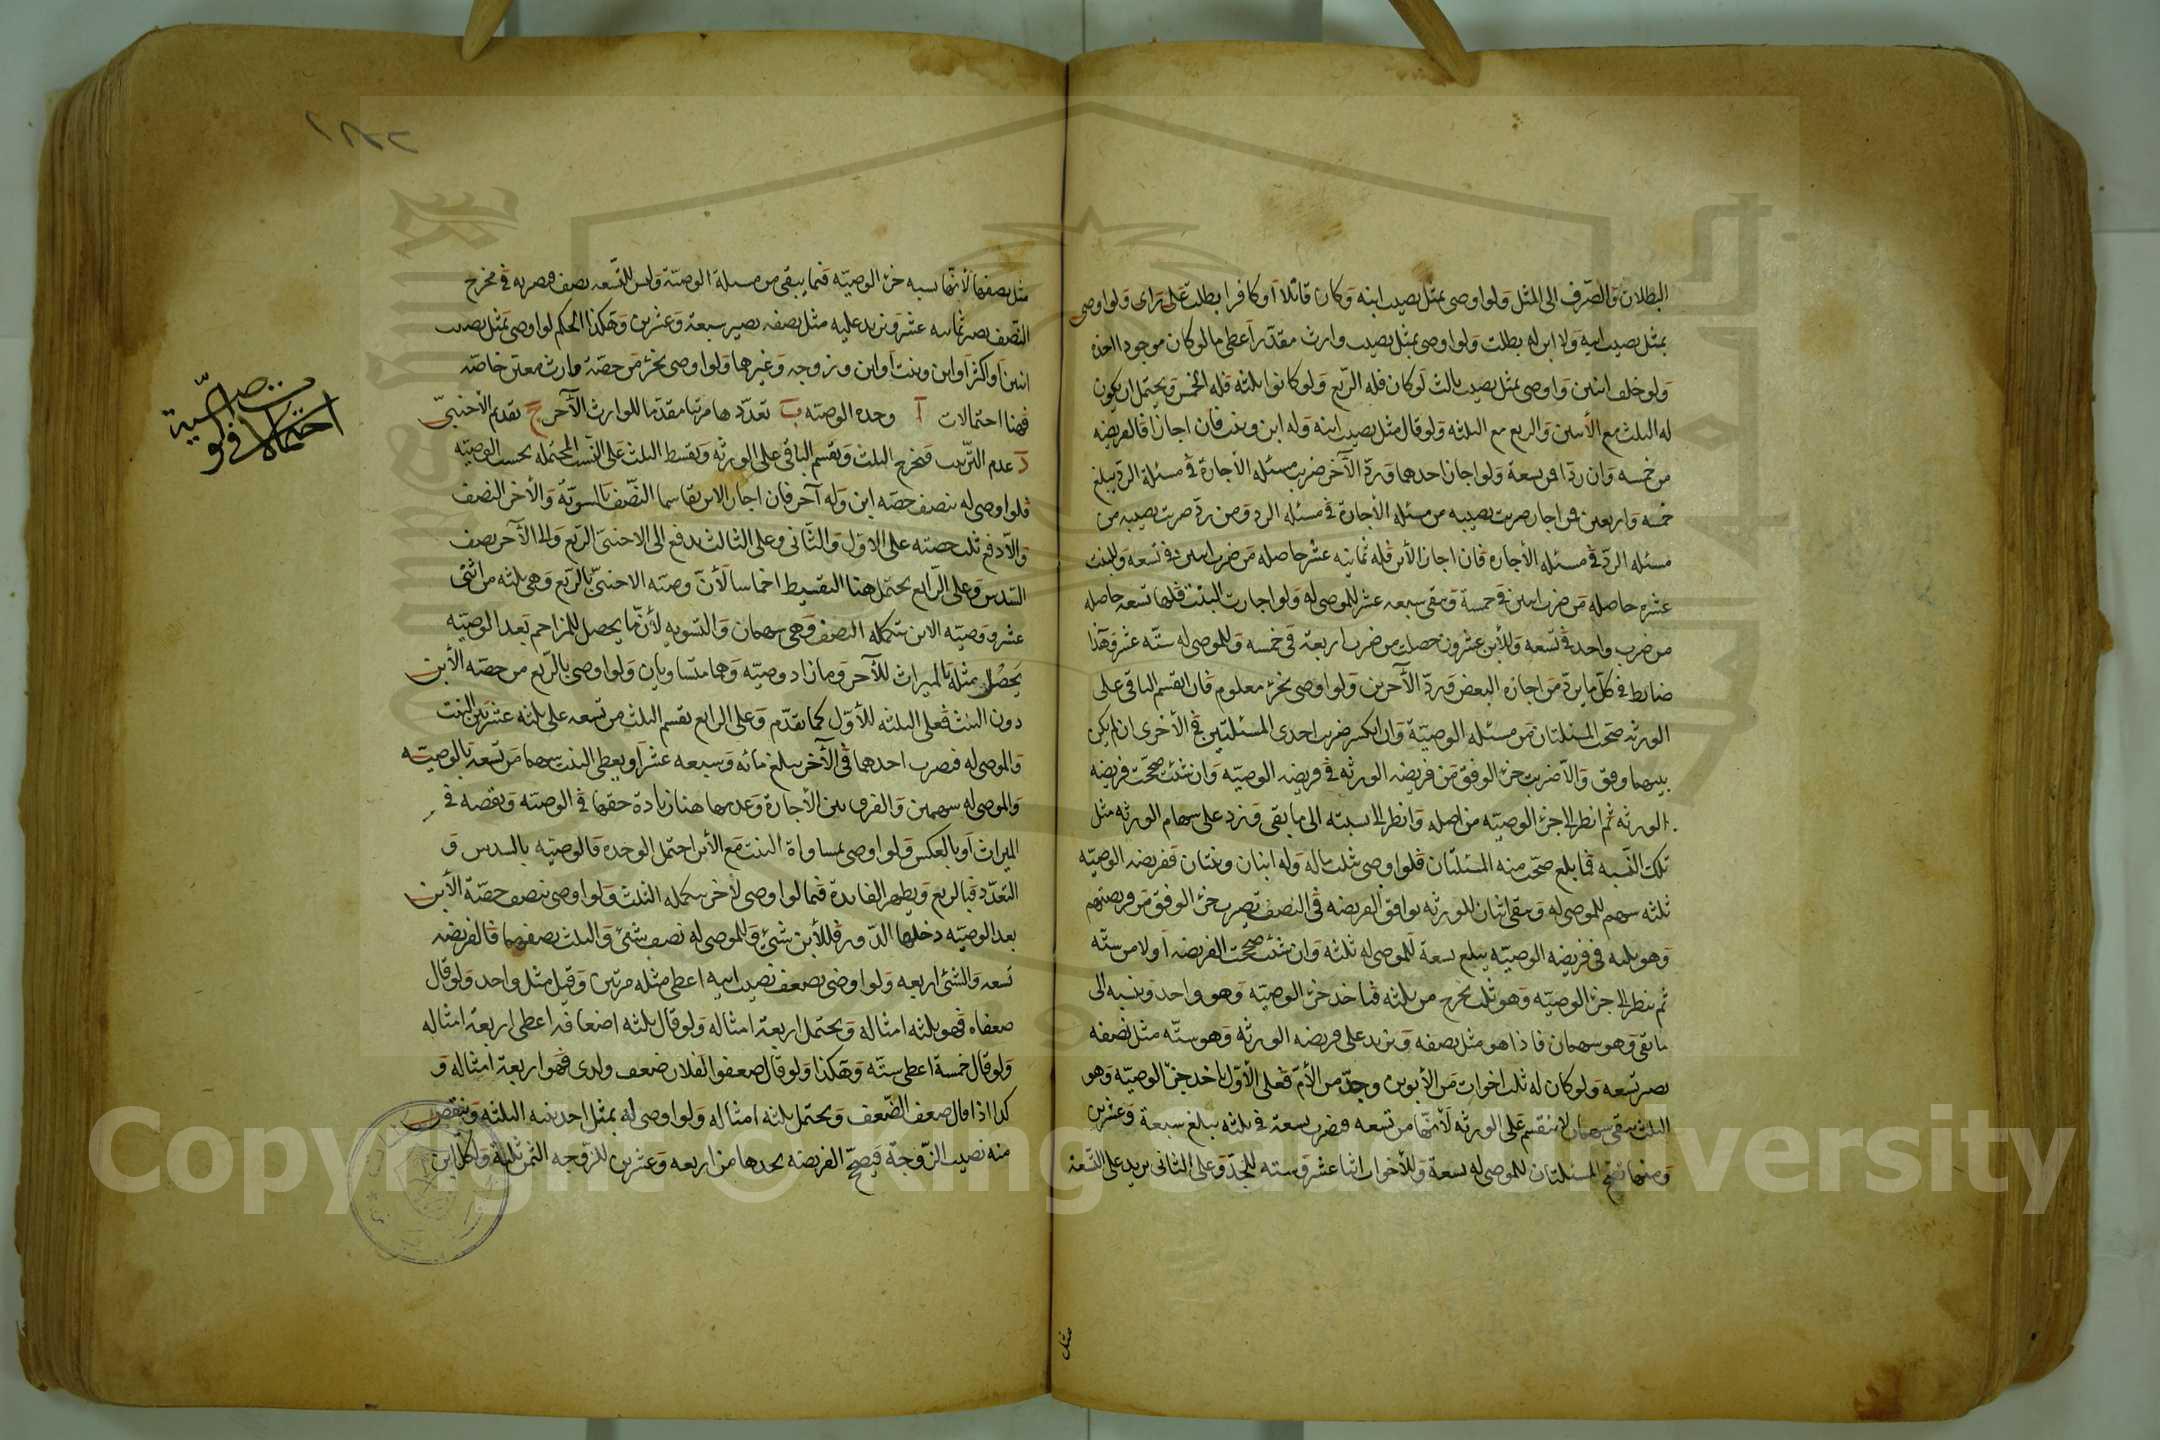 البطلان والصرف الى المثل ولو اوصى بمثل نصيب ابنه وكان قاتلا او كافرا بطلت على راى ولو اوصى
بمثل نصيب ابيه ولا ابن له بطلت ولو اوصى بمثل نصيب وارث مقدر اعطى ما لو كان موجودا اخذه
ولو خلف ابنين واوصى بمثل نصيب ثالث لو كان فله الربع ولو كانوا ثلثه فله الخمس ويحتمل ان يكون
له الثلث مع الاثنين والربع مع الثلثه ولو قال مثل نصيب ابنه وله ابن وبنت فان اجازا فالفريضه
من خمسه وان ردا فتسعة ولو اجاز احدهما ورد الآخر ضربت مسئله الاجازة فى مسئلة الرد يبلغ
خمسه واربعين فمن اجاز ضربت نصيبه من مسئله الاجازة فى مسئله الرد ومن رد ضربت نصيبه من
مسئله الرد فى مسئله الاجازه فان اجاز الابن فله ثمانيه عشر حاصله من ضرب اثنين فى تسعه وللبنت
عشره حاصله من ضرب اثنين فى خمسة ويبقى سبعه عشر للموصى له ولو اجازت البنت فلها تسعه حاصله
من ضرب واحد فى تسعه وللابن عشرون حصلت من ضرب اربعة فى خمسه وللموصى له ستّه عشر وهذا
ضابط فى كل ما يرد من اجازه البعض ورد الآخرين ولو اوصى بجزء معلوم فان انقسم الباقى على
الورثه صحت المسئلتان من مسئله الوصيّة وان انكسر ضربت احدى المسئلتين فى الاخرى ان لم يكن
بينهما وفق والا ضربت جزء الوفق من فريضه الورثه فى فريضه الوصيّه وان شئت صححت فريضه
الورثه ثم انظر الى جزء الوصيّه من اصله وانظر الى نسبته الى ما بقى وزد على سهام الورثه مثل
تلك النسبه فما بلغ صحّت منه المسئلتان فلو اوصى بثلث ماله وله ابنان وبنتان ففريضه الوصيّه
ثلثه سهم للموصى له ويبقى اثنان للورثه توافق الفريضه فى النصف تضرب جزء الوفق من فريضتهم
وهو ثلثه فى فريضه الوصيّه يبلغ تسعة للموصى له ثلثه وان شئت صححت الفريضه اولا من ستّه
ثم تنظر الى جزء الوصيّه وهو ثلث يخرج من ثلثه فتأخذ جزء الوصيّه وهو واحد وتنسبه الى
ما بقى وهو سهمان فاذا هو مثل نصفه وتزيد على فريضه الورثه وهو ستّه مثل نصفه
تصير تسعه ولو كان له ثلث اخوات من الابوين وجدّ من الامّ فعلى الاوّل تاخذ جزء الوصيّه وهو
الثلث يبقى سهمان لا تنقسم على الورثه لانّها من تسعه فتضرب تسعة فى ثلثه يبلغ سبعة وعشرين
ومنها تصح المسئلتان للموصى له تسعة وللأخوات اثنا عشر وستّه للجدّ وعلى الثانى تزيد على التسعة
مثل
١٨٢
مثل نصفها لانّها نسبه جزء الوصيّه فيما يبقى من مسئلة الوصيّة وليس للتّسعه نصف فتضربه فى مخرج
النصف تصير ثمانيه عشر وتزيد عليه مثل نصفه تصير سبعة وعشرين وهكذا الحكم لو اوصى بمثل نصيب
ابنين او اكثر او ابن وبنت او ابن وزوجه وغيرها ولو اوصى بجزء من حصّة وارث معيّن خاصّه
فهنا احتمالات آ وحده الوصيّه ب تعدّدها مرتبا مقدّما للوارث الآخر ج تقديم الاجنبيّ
د عدم الترتيب فيخرج الثلث ويقسم الباقى على الورثه ويقسط الثلث على النسب المحتمله بحسب الوصيّه
فلو اوصى له بنصف حصّه ابن وله آخر فان اجاز الابن تقاسما النصف بالسويّة والاخر النصف
والا دفع ثلث حصته على الاوّل والثّانى وعلى الثالث يدفع الى الاجنبى الربع والى الآخر نصف
السدس وعلى الرّابع يحتمل هنا التقسيط اخماسا لأنّ وصيّه الاجنبىّ بالربع وهى ثلثه من اثنى
عشر ووصيّه الابن بتكمله النصف وهى سهمان والتسويه لأنّ ما يحصل للمزاحم بعد الوصيّه
يحصل مثله بالميراث للآخر وما زاد وصيّه وهما متساويان ولو اوصى بالربع من حصّه الابن
دون البنت فعلى الثلثه للأوّل كما تقدّم وعلى الرابع يقسم الثلث من تسعه على ثلثه عشر بين البنت
والموصى له فتضرب احدهما فى الآخر يبلغ مائه وسبعه عشر او يعطى البنت سهما من تسعة بالوصيّه
والموصى له سهمين والفرق بين الاجازة وعدمها هنا زيادة حقها فى الوصيّه ونقصه فى
الميراث او بالعكس ولو اوصى بمساواة البنت مع الابن احتمل الوحده فالوصيّه بالسدس و
التعدّد فبالربع ويظهر الفايدة فيما لو اوصى لآخر بتكمله الثلث ولو اوصى بنصف حصّة الابن
بعد الوصيّه دخلها الدّور فللأبن شئ وللموصى له نصف شئ والثلث نصفهما فالفريضه
تسعه والشئ اربعه ولو اوصى بضعف نصيب ابنه اعطى مثله مرتين وقيل مثل واحد ولو قال
ضعفاه فهو ثلثه امثاله ويحتمل اربعة امثاله ولو قال ثلثه اضعافه اعطى اربعة امثاله
ولو قال خمسة اعطى ستّه وهكذا ولو قال ضعفوا لفلان ضعف ولدى فهو اربعة امثاله و
كذا اذا قال ضعف الضّعف ويحتمل ثلثه امثاله ولو اوصى له بمثل احد بنيه الثلثه وينقص
منه نصيب الزّوجة فيصحّ الفريضه بعدها من اربعه وعشرين للزّوجه الثمن ثلثة ولكل ابن
احتمالات
فى الوصية